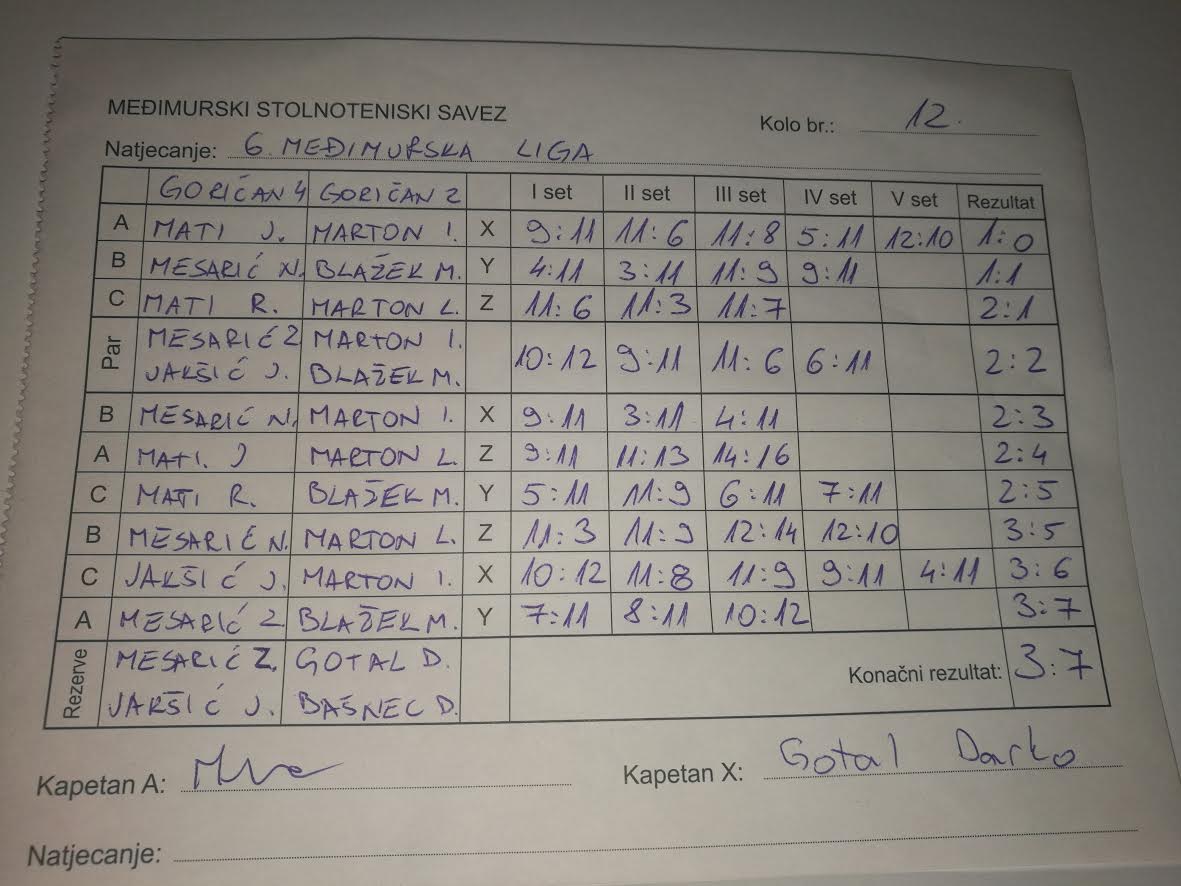 MEĐIMURSKI STOLNOTENISKI SAVEZ
Kolo br.: 12.
Natjecanje: 6. MEĐIMURSKA LIGA
GORIČAN 4 GORIČAN 2 I set II set III set IV set V set Rezultat
A MATI J. MARTON I. X 9:11 11:6 11:8 5:11 12:10 1:0
B MESARIĆ N. BLAŽEK M. Y 4:11 3:11 11:9 9:11 1:1
C MATI R. MARTON L. Z 11:6 11:3 11:7 2:1
Par MESARIĆ Z MARTON I. 10:12 9:11 11:6 6:11 2:2
JAKŠIĆ J. BLAŽEK M.
B MESARIĆ N. MARTON I. X 9:11 3:11 4:11 2:3
A MATI. J MARTON L. Z 9:11 11:13 14:16 2:4
C MATI R. BLAŽEK M. Y 5:11 11:9 6:11 7:11 2:5
B MESARIĆ N. MARTON L. Z 11:3 11:9 12:14 12:10 3:5
C JAKŠIĆ J. MARTON I. X 10:12 11:8 11:9 9:11 4:11 3:6
A MESARIĆ Z. BLAŽEK M. Y 7:11 8:11 10:12 3:7
Rezerve MESARIĆ Z. GOTAL D. Konačni rezultat: 3:7
JAKŠIĆ J. BAŠNEC D.
Kapetan A: Kapetan X: Gotal Darko
Natjecanje: